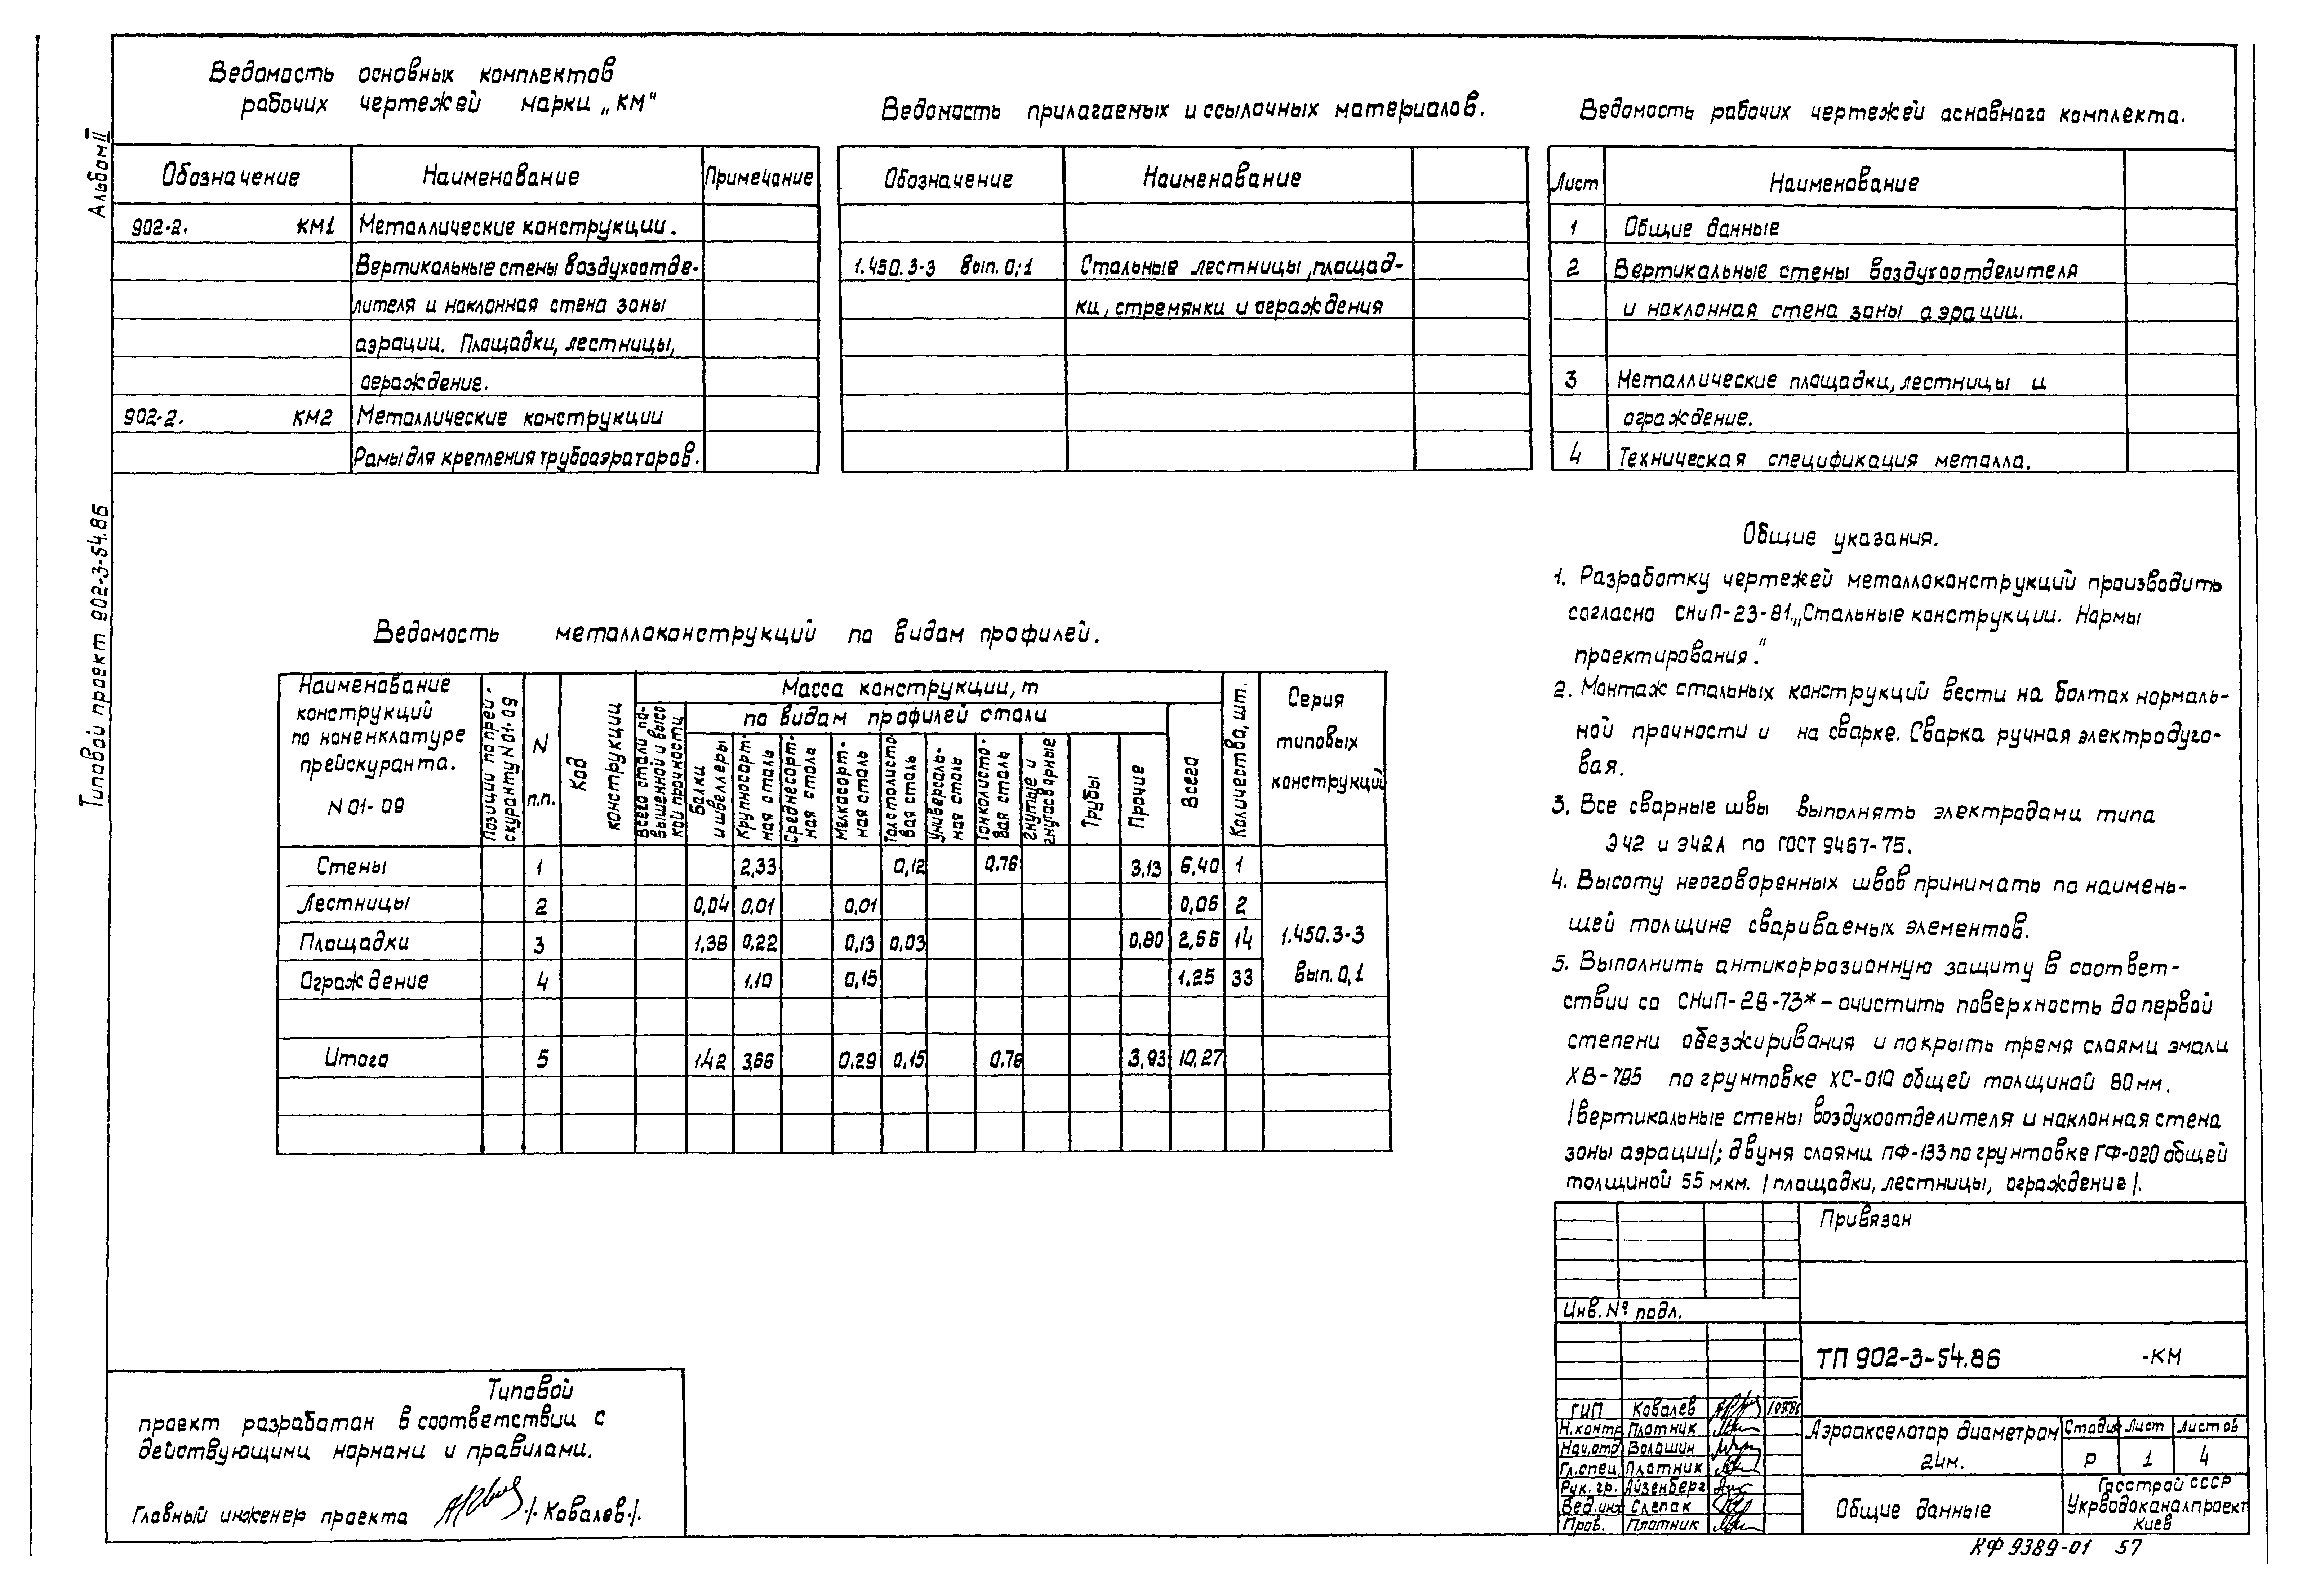 Альбом II
Типовой проект 902-3-54.86
Ведомость основных комплектов
рабочих чертежей марки „КМ"
Обозначение Наименование Примечание
902-2. КМ1 Металлические конструкции.
Вертикальные стены воздухоотде-
лителя и наклонная стена зоны
аэрации. Площадки, лестницы,
ограждение.
902-2. КМ2 Металлические конструкции
Рамы для крепления трубоаэраторов.
Ведомость прилагаемых и ссылочных материалов.
Обозначение Наименование
1.450.3-3 Вып. 0;1 Стальные лестницы, площад-
ки, стремянки и ограждения
Ведомость рабочих чертежей основного комплекта.
Лист Наименование
1 Общие данные
2 Вертикальные стены воздухоотделителя
и наклонная стена зоны аэрации.
3 Металлические площадки, лестницы и
ограждение.
4 Техническая спецификация металла.
Ведомость металлоконструкций по видам профилей.
Наименование
конструкций
по номенклатуре
прейскуранта.
N 01-09
Позиции по прей-
скуранту N 01-09
N
п.п.
Код
конструкции
Масса конструкции, т
Всего стали по-
вышенной и высо-
кой прочности
по видам профилей стали
Балки
и швеллеры
Крупносорт-
ная сталь
Среднесорт-
ная сталь
Мелкосорт-
ная сталь
Толстолисто-
вая сталь
Универсаль-
ная сталь
Тонколисто-
вая сталь
Гнутые и
гнутосварные
Трубы
Прочие
Всего
Количества, шт.
Серия
типовых
конструкций
Стены 1 2,33 0,12 0.76 3,13 6,40 1
Лестницы 2 0,04 0,01 0,01 0,06 2
Площадки 3 1,38 0,22 0,13 0,03 0,80 2,56 14 1.450.3-3
Ограждение 4 1.10 0,15 1,25 33 Вып. 0,1
Итого 5 1.42 3,66 0,29 0,15 0.76 3,93 10,27
Общие указания.
1. Разработку чертежей металлоконструкций производить
согласно СНиП-23-81.„Стальные конструкции. Нормы
проектирования."
2. Монтаж стальных конструкций вести на болтах нормаль-
ной прочности и на сварке. Сварка ручная электродуго-
вая.
3. Все сварные швы выполнять электродами типа
Э42 и Э42А по ГОСТ 9467-75.
4. Высоту неоговоренных швов принимать по наимень-
шей толщине свариваемых элементов.
5. Выполнить антикоррозионную защиту в соответ-
ствии со СНиП-28-73* - очистить поверхность до первой
степени обезжиривания и покрыть тремя слоями эмали
ХВ-785 по грунтовке ХС-010 общей толщиной 80 мм.
/вертикальные стены воздухоотделителя и наклонная стена
зоны аэрации/; двумя слоями ПФ-133 по грунтовке ГФ-020 общей
толщиной 55 мкм. /площадки, лестницы, ограждение/.
Привязан
Инв. № подл.
ТП 902-3-54.86 -КМ
ГИП Ковалев
Н.контр Плотник
Нач.отд Волошин
Гл.спец. Плотник
Рук. гр. Айзенберг
Вед.инж Слепак
Пров. Плотник
Аэроакселатор диаметром
24м.
Стадия Лист Листов
Р 1 4
Общие данные
Госстрой СССР
Укрводоканалпроект
Киев
Типовой
проект разработан в соответствии с
действующими нормами и правилами.
Главный инженер проекта /.Ковалев./.
КФ 9389-01 57